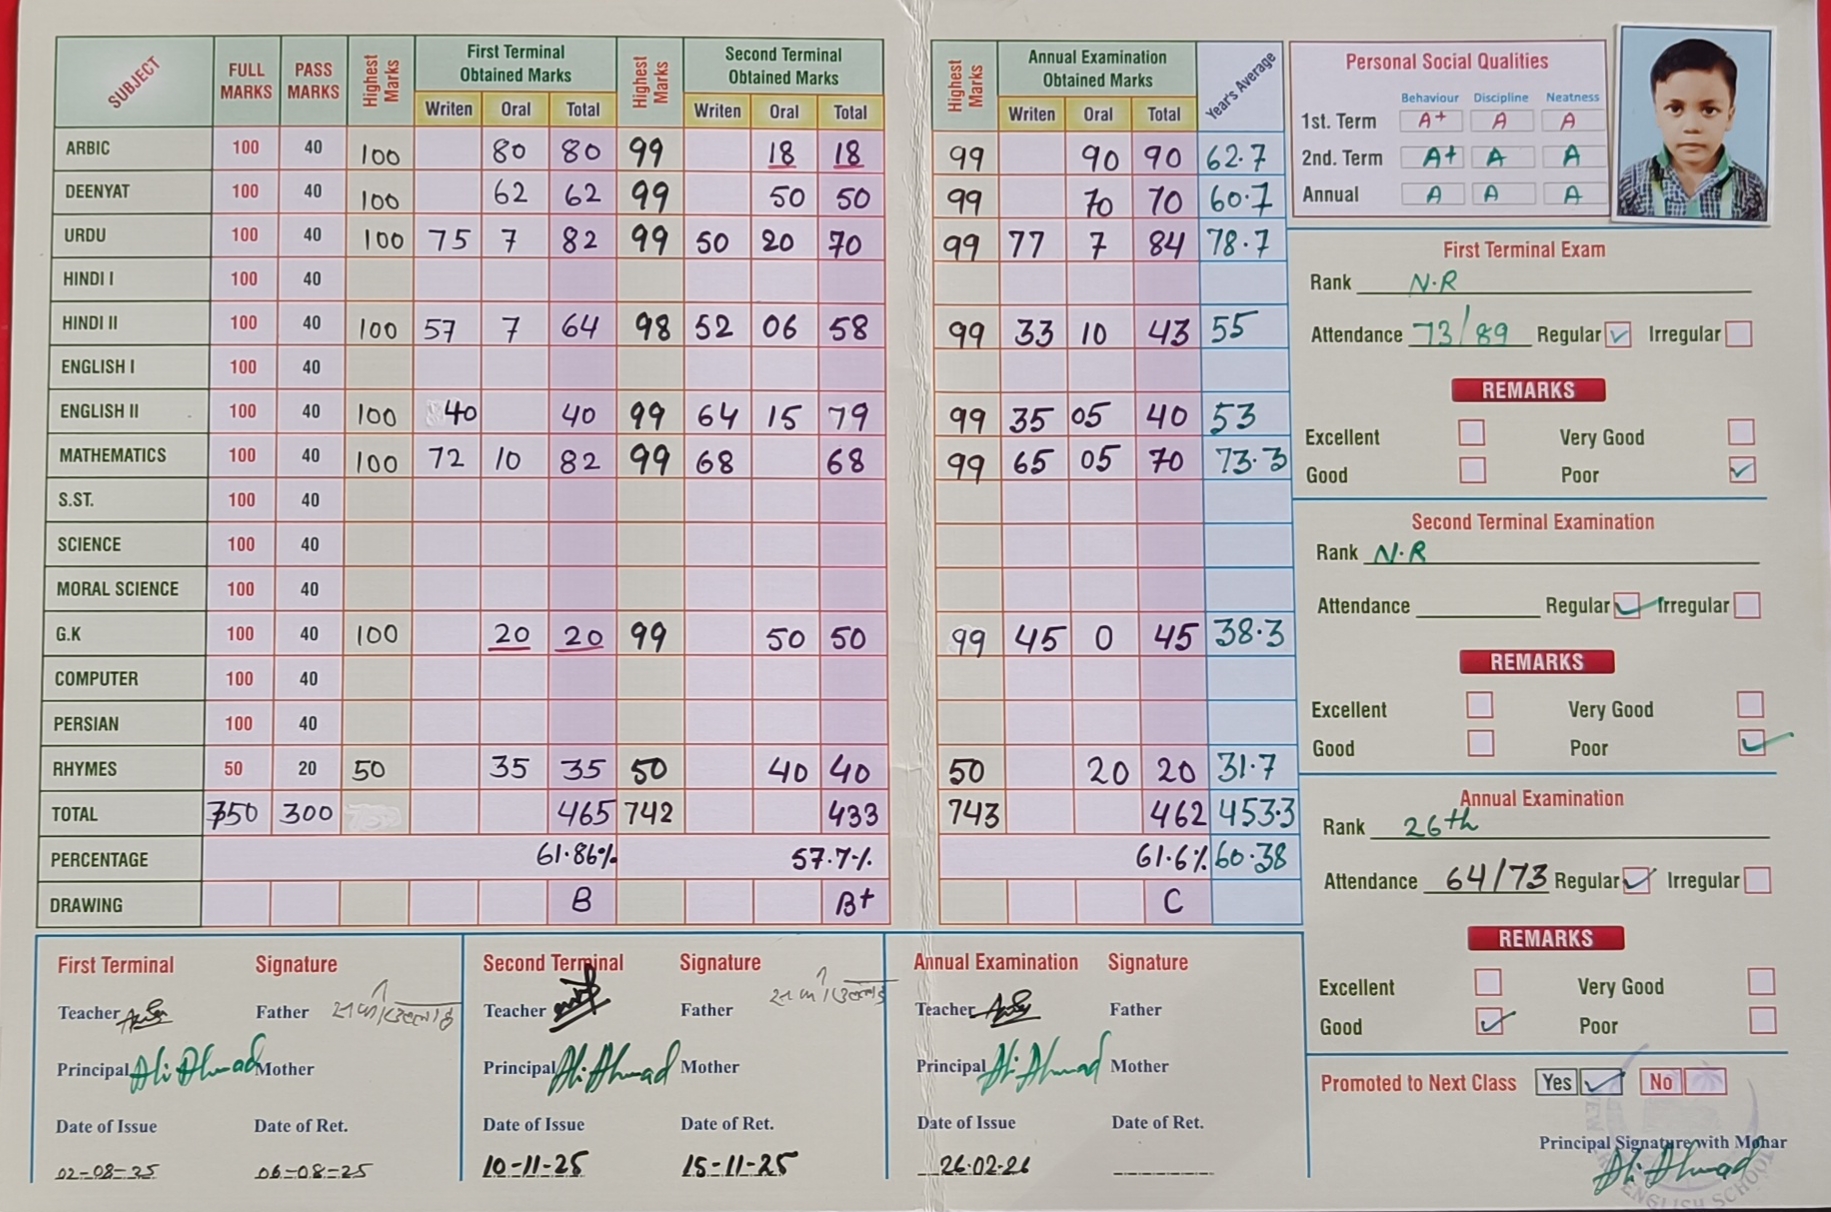 SUBJECT FULL MARKS PASS MARKS Highest Marks First Terminal Obtained Marks Highest Marks Second Terminal Obtained Marks Highest Marks Annual Examination Obtained Marks Year's Average
Writen Oral Total Writen Oral Total Writen Oral Total
ARBIC 100 40 100 80 80 99 18 18 99 90 90 62.7
DEENYAT 100 40 100 62 62 99 50 50 99 70 70 60.7
URDU 100 40 100 75 7 82 99 50 20 70 99 77 7 84 78.7
HINDI I 100 40
HINDI II 100 40 100 57 7 64 98 52 06 58 99 33 10 43 55
ENGLISH I 100 40
ENGLISH II 100 40 100 40 40 99 64 15 79 99 35 05 40 53
MATHEMATICS 100 40 100 72 10 82 99 68 68 99 65 05 70 73.3
S.ST. 100 40
SCIENCE 100 40
MORAL SCIENCE 100 40
G.K 100 40 100 20 20 99 50 50 99 45 0 45 38.3
COMPUTER 100 40
PERSIAN 100 40
RHYMES 50 20 50 35 35 50 40 40 50 20 20 31.7
TOTAL 750 300 465 742 433 743 462 453.3
PERCENTAGE 61.86% 57.7% 61.6% 60.38
DRAWING B B+ C
First Terminal Signature
Teacher Father
Principal Ali Ahmad Mother
Date of Issue Date of Ret.
02-08-25 06-08-25
Second Terminal Signature
Teacher Father
Principal Ali Ahmad Mother
Date of Issue Date of Ret.
10-11-25 15-11-25
Annual Examination Signature
Teacher Father
Principal Ali Ahmad Mother
Date of Issue Date of Ret.
26.02.26
Personal Social Qualities
Behaviour Discipline Neatness
1st. Term A+ A A
2nd. Term A+ A A
Annual A A A
First Terminal Exam
Rank N.R
Attendance 73/89 Regular Irregular
REMARKS
Excellent Very Good
Good Poor
Second Terminal Examination
Rank N.R
Attendance Regular Irregular
REMARKS
Excellent Very Good
Good Poor
Annual Examination
Rank 26th
Attendance 64/73 Regular Irregular
REMARKS
Excellent Very Good
Good Poor
Promoted to Next Class Yes No
Principal Signature with Mohar
Ali Ahmad
ENGLISH SCHOOL